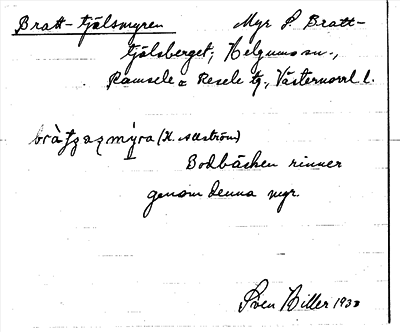 Bratt-tjälsmyren Myr S Bratt-
tjälsberget, Helgums sn.,
Ramsele o Resele tg., Västernorrl. l.
(K. Allström)
Bodbäcken rinner
genom denna myr.
Sven Hiller 193